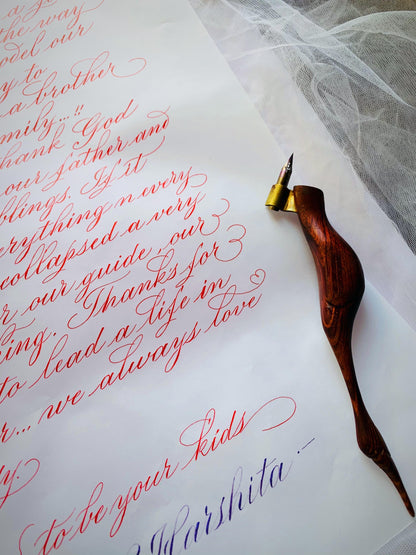 the way
odel our
y to
a brother
mily...!!
hank God
our father and
blings. If it
erything n every
collapsed a very
r our guide, our
ing. Thanks for
to lead a life in
r... we always love
y.
to be your kids
Harshita